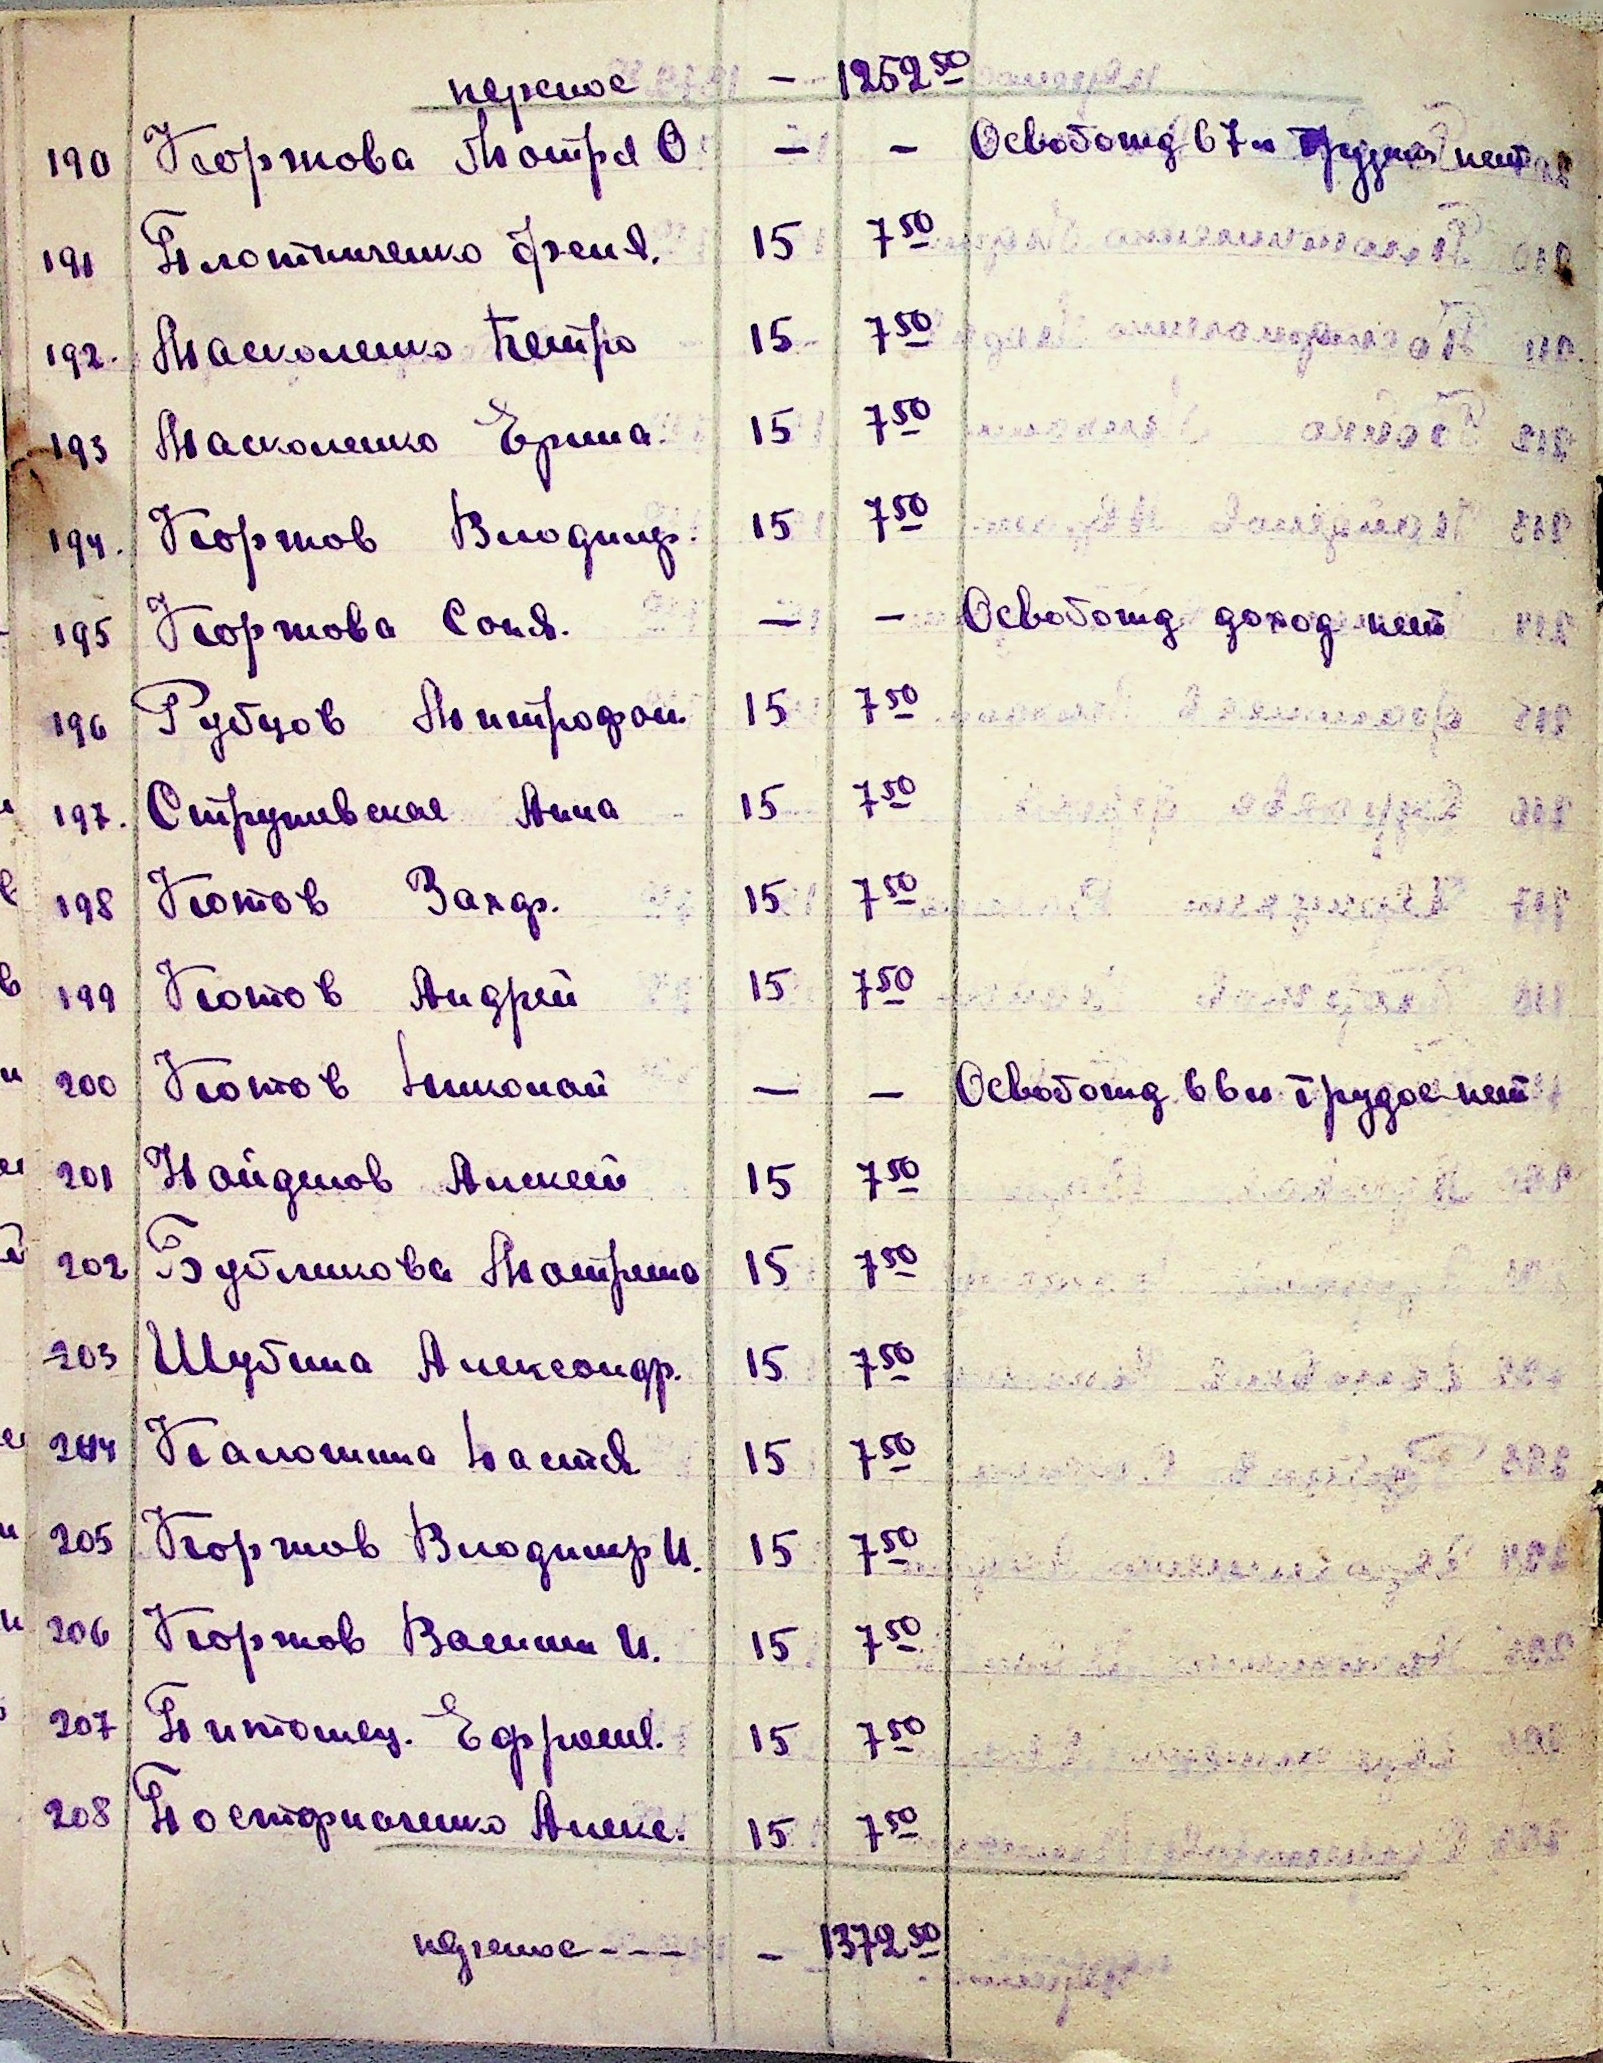 перенос — 1252 50
190 Коржова Мотря О — — Освобожд в 7и трудосп нет
191 Плотниченко Феня. 15 7 50
192. Масколенко Петро 15 7 50
193 Масколенко Ерина. 15 7 50
194. Коржов Владимр. 15 7 50
195 Коржова Соня. — — Освобожд доход нет
196 Рубцов Митрофан. 15 7 50
197. Стружевская Анна 15 7 50
198 Котов Захар. 15 7 50
199 Котов Андрей 15 7 50
200 Котов Николай — — Освобожд. в ви трудос нет
201 Найденов Алексей 15 7 50
202 Бубликова Мотрина 15 7 50
203 Шубина Александр. 15 7 50
204 Калошина Настя 15 7 50
205 Коржов Владимр И. 15 7 50
206 Коржов Васили И. 15 7 50
207 Ефросин. 15 7 50
208 Алекс. 15 7 50
перенос - - - — 1372 50